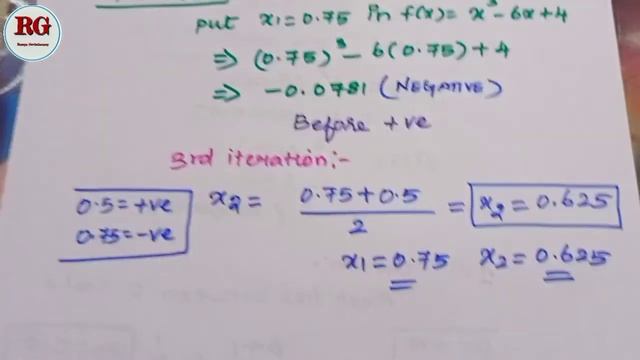 RG
put x₁=0.75 in f(x)= x³-6x+4
⇒ (0.75)³-6(0.75)+4
⇒ -0.0781 (NEGATIVE)
Before +ve
3rd iteration:-
0.5=+ve
0.75=-ve
x₂= 0.75+0.5 / 2 = x₂=0.625
x₁=0.75 x₂=0.625